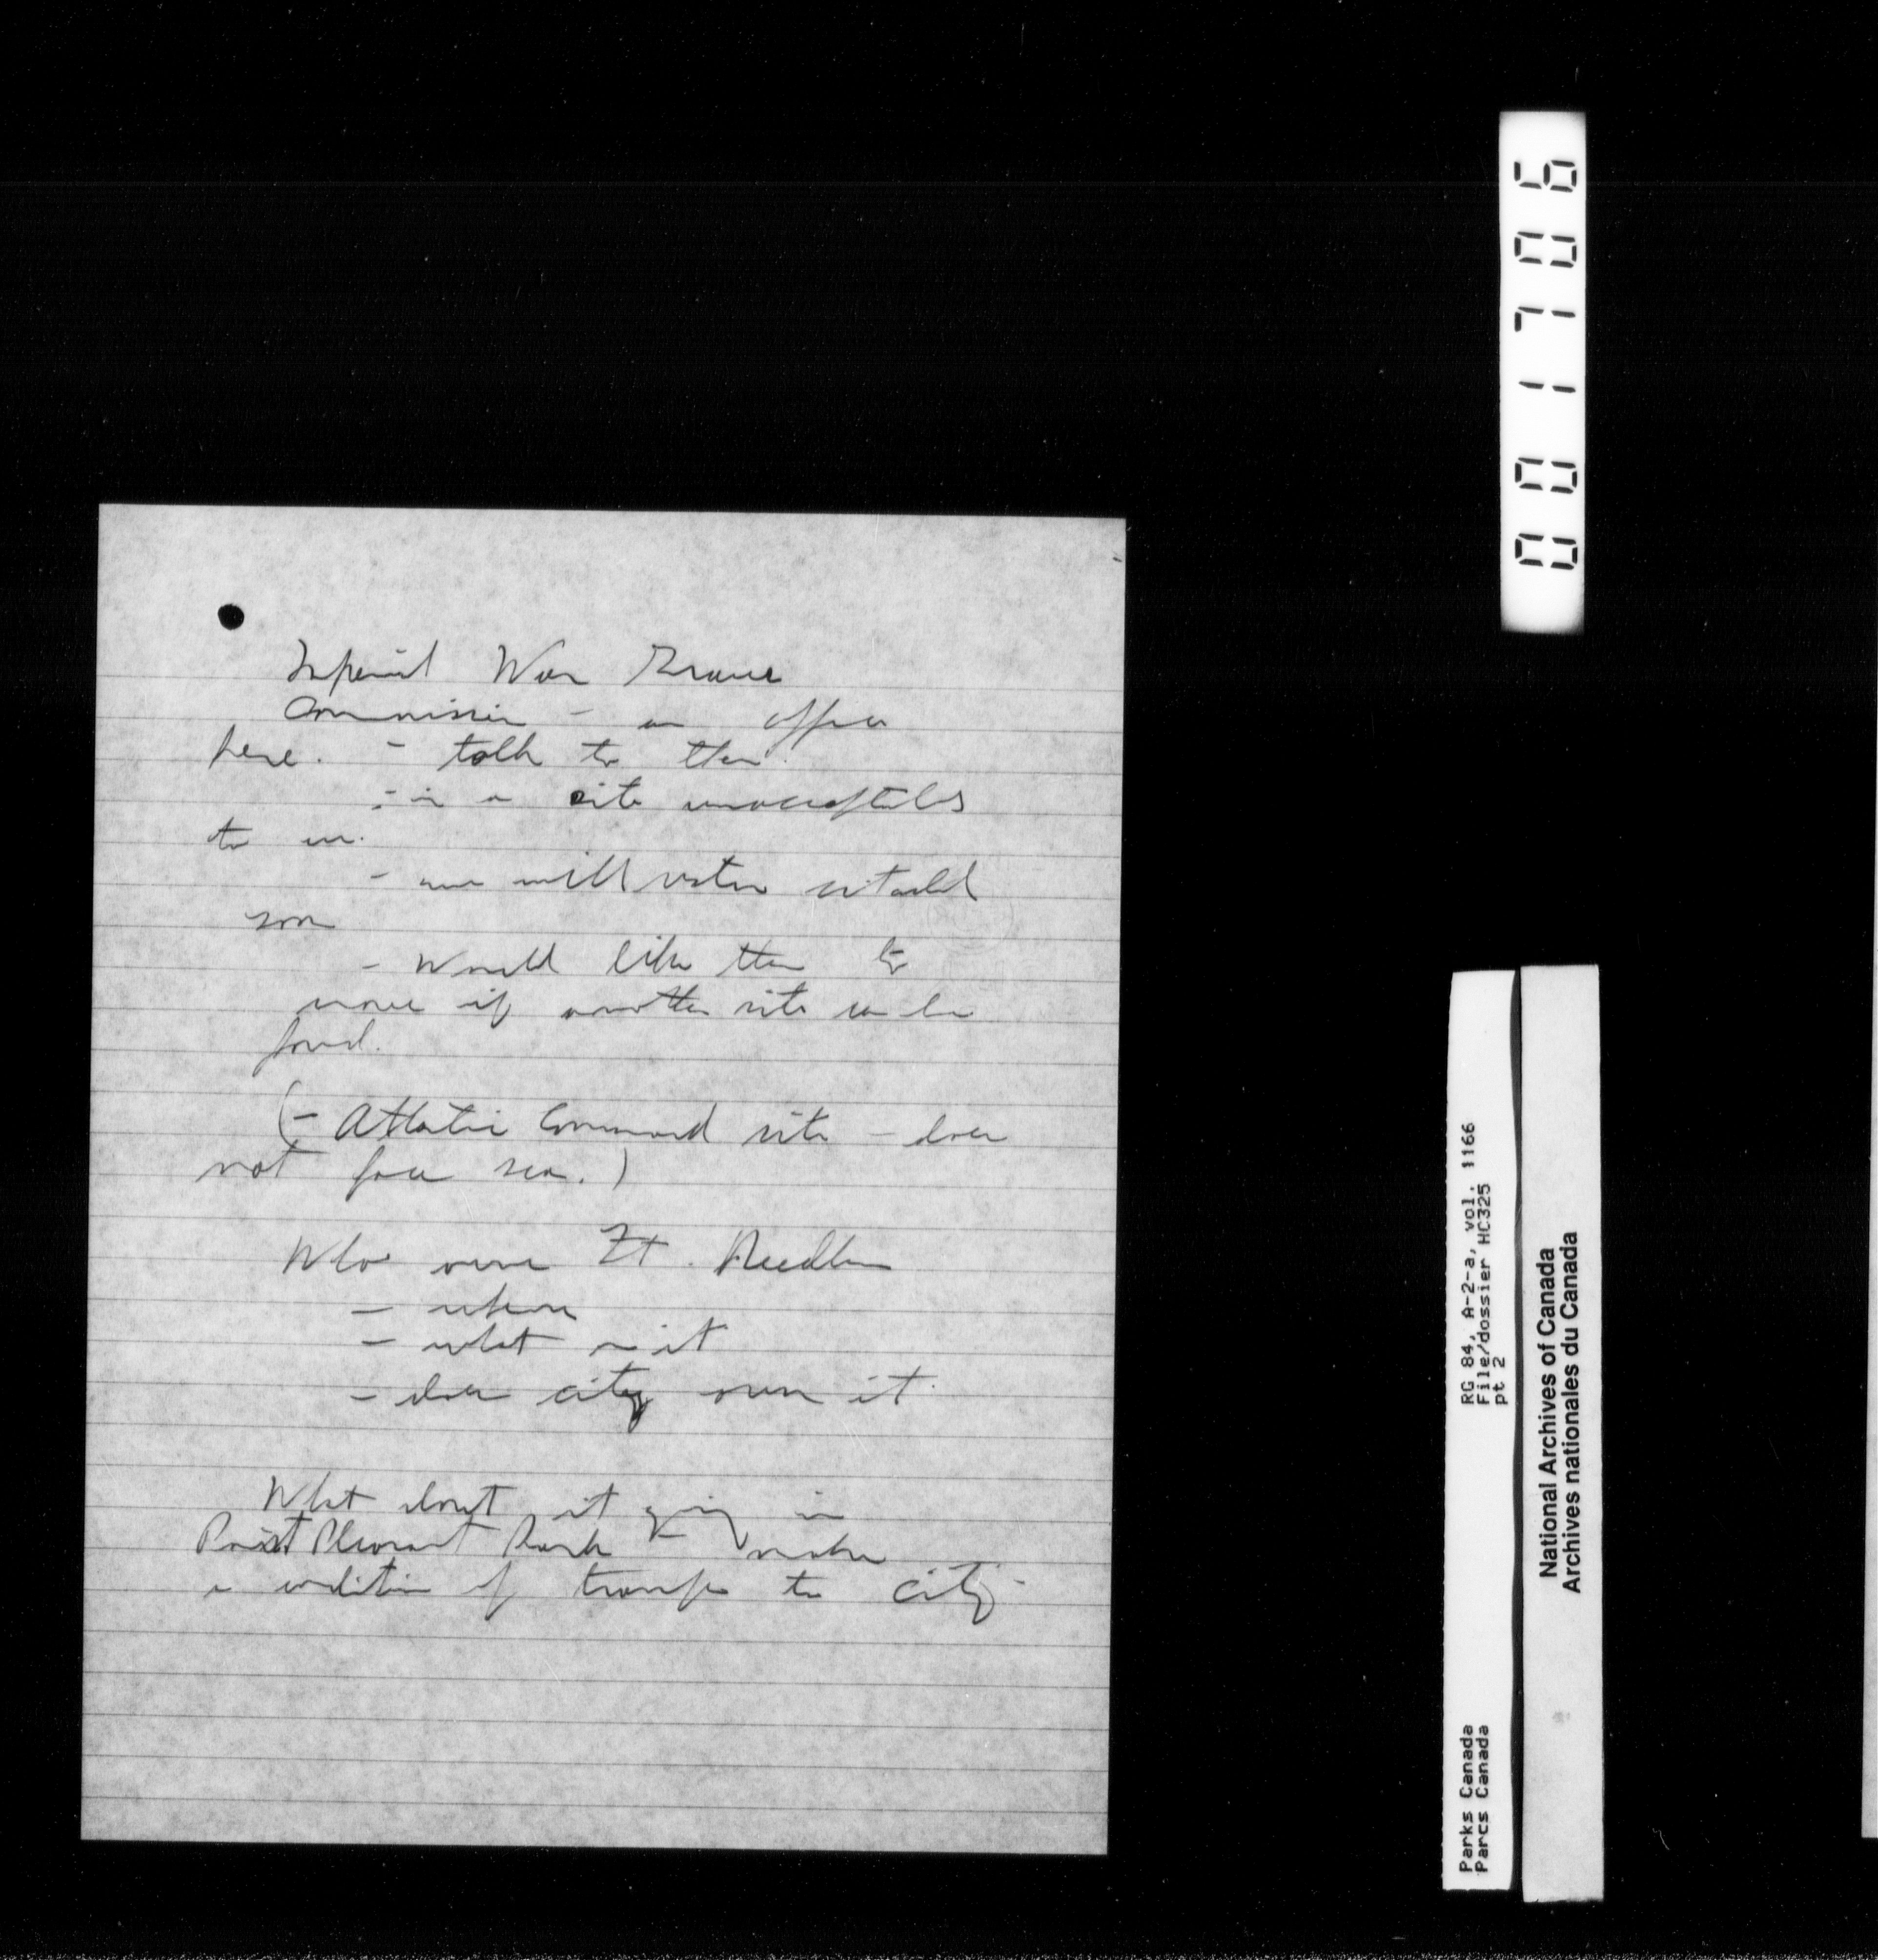 Imperial War Graves
Commission - an office
here. - talk to them.
- is a site unacceptable
to us.
- we will restore citadel
soon
- Would like them to
move if another site can be
found.
(- Atlantic Command site - does
not face sea.)
Who owns Ft. Needham
- where
- what is it
- does city own it.
What about it going in
Point Pleasant Park - make
a condition of transfer to city.
001706
RG 84, A-2-a, vol. 1166
File/dossier HC325
pt 2
Parks Canada
Parcs Canada
National Archives of Canada
Archives nationales du Canada